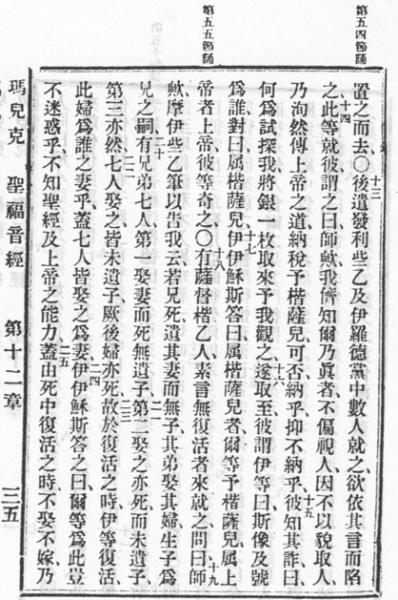 第五四節誦
第五五節誦
置之而去、○十三後遣發利些乙及伊羅德黨中數人就之、欲依其言而陷
之、十四此等就彼謂之曰、師歟、我儕知爾乃眞者、不偏視人、因不以貌取人、
乃洵然傳上帝之道、納稅予楷薩兒可否、納乎、抑不納乎、十五彼知其詐曰、
何爲試探我、將銀一枚取來予我觀之、十六遂取至、彼謂伊等曰、斯像及號
爲誰、對曰、属楷薩兒、十七伊伊穌斯答曰、属楷薩兒者、爾等予楷薩兒、属上
帝者上帝、彼等奇之、○十八有薩督楷乙人、素言無復活者、來就之問曰、十九師
歟、摩伊些乙筆以告我云、若兄死遺其妻而無子、其弟娶其婦、生子爲
兄之嗣、二十有兄弟七人、第一娶妻而死、無遺子、二一第二娶之亦死、而未遺子、
第三亦然、二二七人娶之、皆未遺子、厥後婦亦死、二三故於復活之時、伊等復活、
此婦爲誰之妻乎、蓋七人皆娶之爲妻、二四伊伊穌斯答之曰、爾等爲此豈
不迷惑乎、不知聖經及上帝之能力、二五蓋由死中復活之時、不娶不嫁、乃
瑪兒克 聖福音經 第十二章 三五